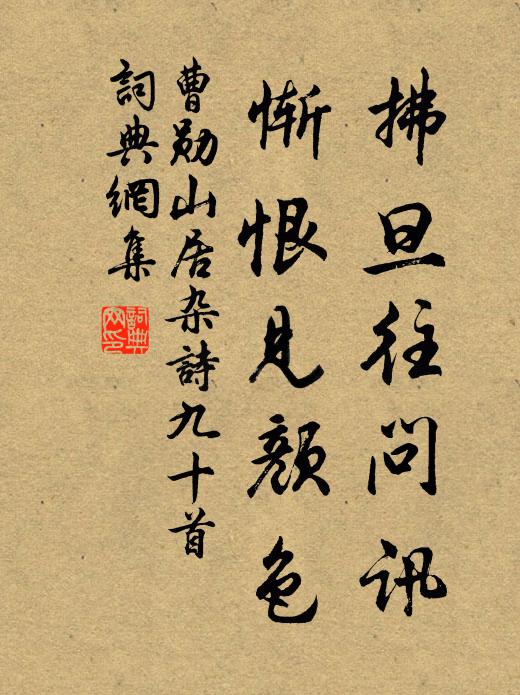 拂旦往问讯
惭恨见颜色
曹勋山居杂詩九十首
詞典網集
詞典网印